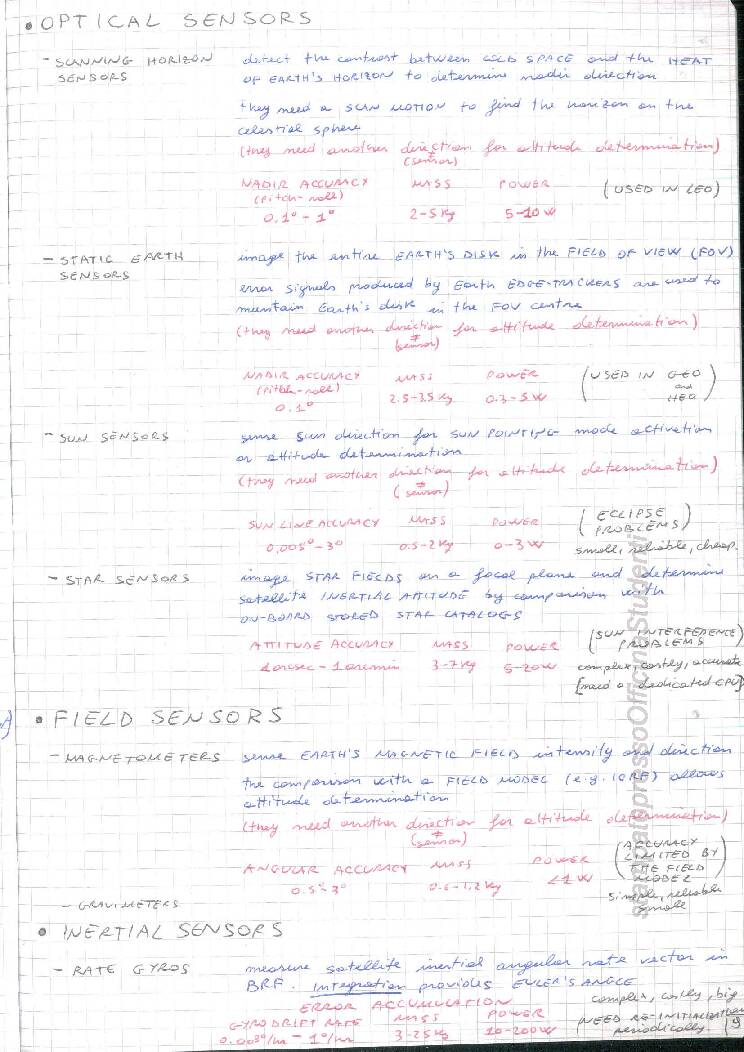 • OPTICAL SENSORS
- SCANNING HORIZON SENSORS
detect the contrast between COLD SPACE and the HEAT
OF EARTH'S HORIZON to determine nadir direction
they need a SCAN MOTION to find the horizon on the
celestial sphere
(they need another direction for attitude determination)
(sensor)
NADIR ACCURACY MASS POWER (USED IN LEO)
(pitch-roll)
0.1° - 1° 2-5 Kg 5-10 W
- STATIC EARTH SENSORS
image the entire EARTH'S DISK in the FIELD OF VIEW (FOV)
error signals produced by Earth EDGE-TRACKERS are used to
maintain Earth's disk in the FOV centre
(they need another direction for attitude determination)
(sensor)
NADIR ACCURACY MASS POWER (USED IN GEO
(pitch-roll) and
0.1° 2.5-3.5 Kg 0.3-5 W HEO)
- SUN SENSORS
sense sun direction for SUN POINTING mode activation
or attitude determination
(they need another direction for attitude determination)
(sensor)
SUN LINE ACCURACY MASS POWER (ECLIPSE PROBLEMS)
0.005° - 3° 0.5-2 Kg 0-3 W small, reliable, cheap.
- STAR SENSORS
image STAR FIELDS on a focal plane and determine
satellite INERTIAL ATTITUDE by comparison with
ON-BOARD STORED STAR CATALOGS
ATTITUDE ACCURACY MASS POWER (SUN INTERFERENCE PROBLEMS)
1 arcsec - 1 arcmin 3-7 Kg 5-20 W complex, costly, accurate
[need a dedicated CPU]
• FIELD SENSORS
- MAGNETOMETERS
sense EARTH'S MAGNETIC FIELD intensity and direction
the comparison with a FIELD MODEL (e.g. IGRF) allows
attitude determination
(they need another direction for attitude determination)
(sensor)
ANGULAR ACCURACY MASS POWER (ACCURACY LIMITED BY THE FIELD MODEL)
0.5° - 3° 0.6-1.2 Kg <1 W simple, reliable
small
- GRAVIMETERS
• INERTIAL SENSORS
- RATE GYROS
measure satellite inertial angular rate vector in
BRF. Integration provides EULER'S ANGLE
ERROR ACCUMULATION complex, costly, big
GYRO DRIFT RATE MASS POWER (NEED RE-INITIALIZATION
0.003°/hr - 1°/hr 3-25 Kg 10-200 W periodically.
19
stampatopressoOfficinaStudenti